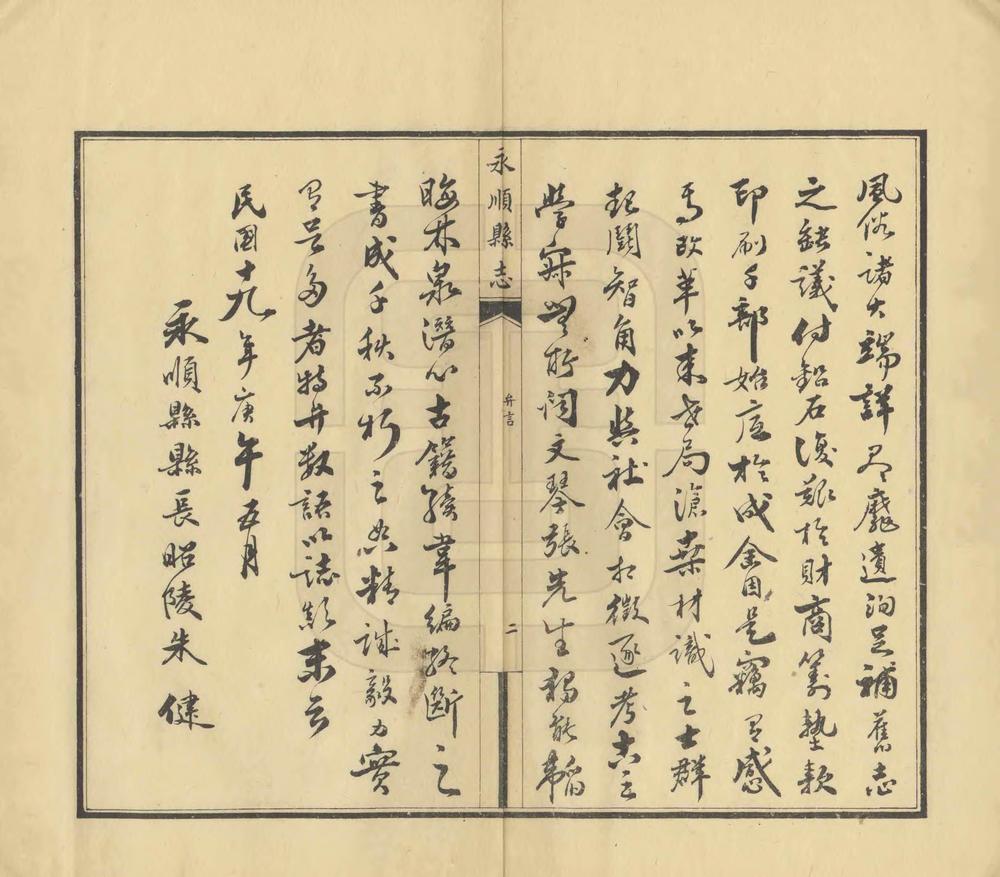 風俗諸大端詳盡靡遺洵足補舊志
之缺議付鉛石復艱於財商籌墊款
印刷千部始底於成僉因是竊有感
焉改革以來世局滄桑材識之士群
起鬪智角力與社會相徵逐考古之
學寂無所聞文琴張先生獨能韜
永順縣志
弁言
二
晦林泉潛心古籍殘韋編將斷之
書成千秋不朽之典精誠毅力實
有足多者特弁數語以誌顛末云
民國十九年庚午五月
永順縣縣長昭陵朱健